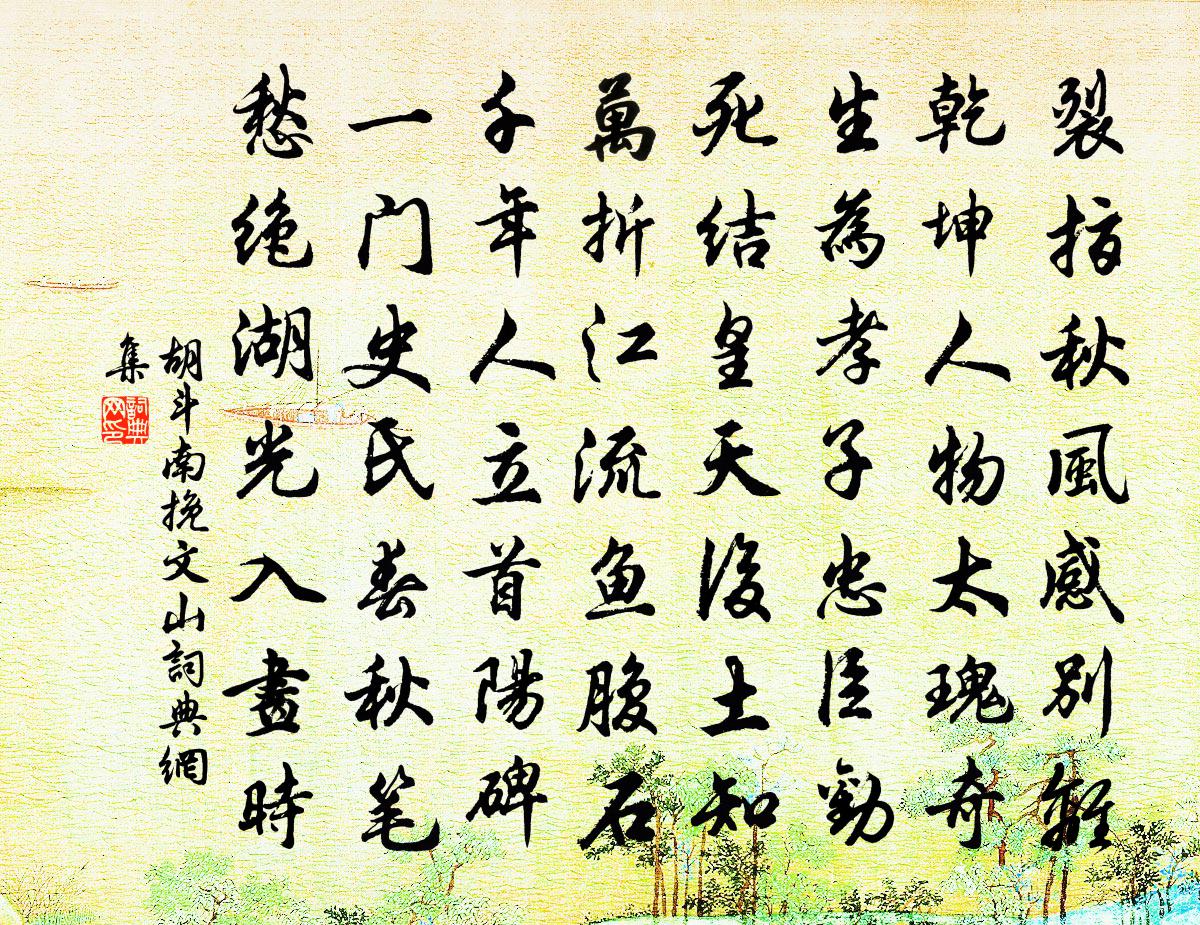 裂指秋風感別難
乾坤人物太瑰奇
生為孝子忠臣勸
死结皇天後土知
萬折江流鱼腹石
千年人立首陽碑
一门史氏春秋笔
愁绝湖光入畫時
胡斗南挽文山詞典網
集
詞典
网印